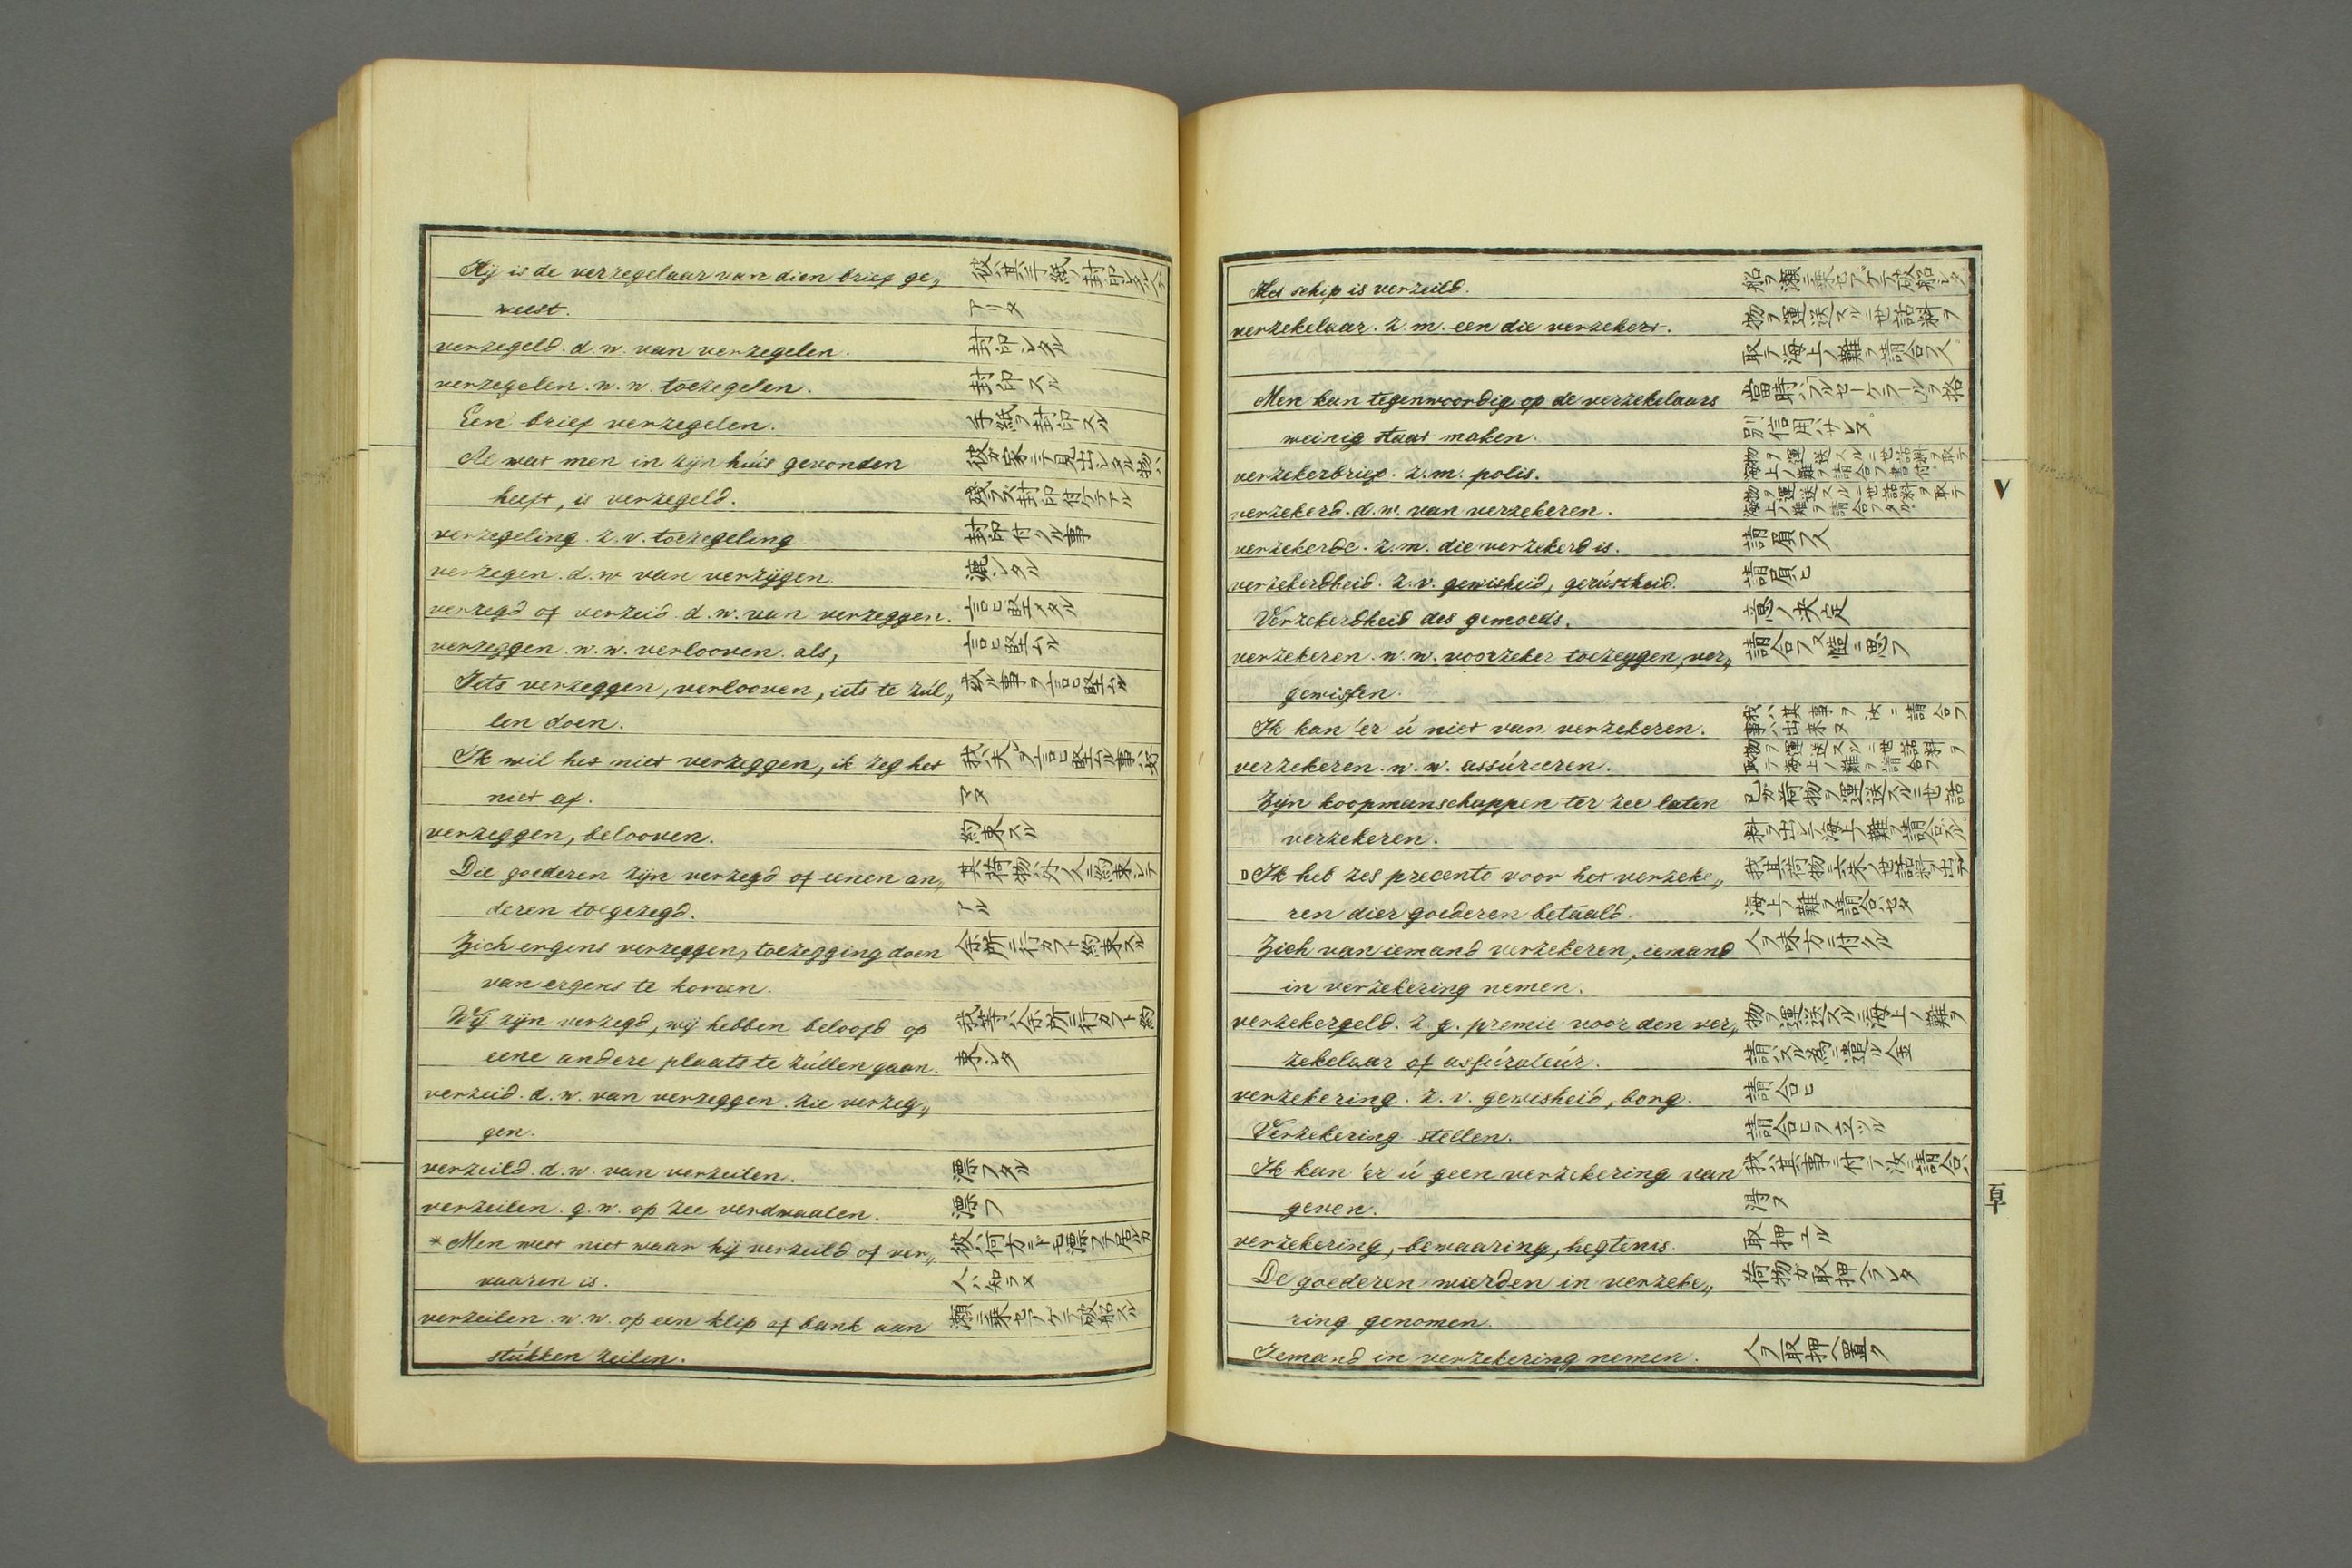 Hij is de verzegelaar van dien brief ge„
weest. アリタ
verzegeld. d. w. van verzegelen. 封印シタル
verzegelen. w. w. toezegelen. 封印スル
Een brief verzegelen. 手紙ヲ封印スル
Al wat men in zijn húis gevonden
heeft, is verzegeld.
verzegeling. z. v. toezegeling 封印付ル事
verzegen. d. w van verzijgen. 漉シタル
verzegd of verzeid d. w. van verzeggen. 言ヒ堅メタル
verzeggen. w. w. verlooven. als, 言ヒ堅ムル
Iets verzeggen, verlooven, iets te zúl„ 或ル事ヲ言ヒ堅ムル
len doen.
Ik wil het niet verzeggen, ik zeg het 我ハ夫ヲ言ヒ堅ムル事ハ好
niet af. マヌ
verzeggen, belooven. 約束スル
Die goederen zijn verzegd of eenen an„ 其荷物ハ外人ニ約束シテ
deren toegezegd. アル
Zich ergens verzeggen, toezegging doen 余所ニ行カフト約束スル
van ergens te komen.
Wij zijn verzegd, wij hebben beloofd op 我等ハ余所ニ行カフト約
eene andere plaats te zúllen gaan. 束シタ
verzeid. d. w. van verzeggen. zie verzeg„
gen.
verzeild. d. w. van verzeilen. 漂フタル
verzeilen. g. w. op zee verdwaalen. 漂フ
* Men weet niet waar hij verzeild of ver„
vaaren is. 人ハ知ラヌ
verzeilen. w. w. op een klip of bank aan 瀬ニ乗セアケテ破船スル
stúkken zeilen.
Het schip is verzeild. 船ヲ瀬ニ乗セアケテ破船シタ
verzekelaar. z. m. een die verzekert. 物ヲ運送スルニ世話料ヲ
取テ海上ノ難ヲ請合フ人
Men kan tegenwoordig op de verzekelaars
weinig staat maken.
verzekerbrief. z. m. polis. 物ヲ運送スルニ世話料ヲ取テ
海上ノ難ヲ請合フ書付
verzekerd. d. w. van verzekeren. 物ヲ運送スルニ世話料ヲ取テ
海上ノ難ヲ請合フタル
verzekerde. z. m. die verzekerd is. 請負フ人
verzekerdheid. z. v. gewisheid, gerústheid. 請負ヒ
Verzekerdheid des gemoeds. 意ノ決定
verzekeren. w. w. voorzeker toezeggen, ver„ 請合フ又慥ニ思フ
gewissen.
Ik kan 'er ú niet van verzekeren. 我ハ其事ヲ汝ニ請合フ
事ハ出来ヌ
verzekeren. w. w. assúreeren. 物ヲ運送スルニ世話料ヲ
取テ海上ノ難ヲ請合フ
Zijn koopmanschappen ter zee laten 己カ荷物ヲ運送スルニ世話
verzekeren. 料ヲ出シテ海上ノ難ヲ請合スル
Ik heb zes precento voor het verzeke„
ren dier goederen betaald. 海上ノ難ヲ請合セタ
Zich van iemand verzekeren, iemand 人ヲ味方ニ付クル
in verzekering nemen.
verzekergeld. z. g. premie voor den ver„ 物ヲ運送スルニ海上ノ難ヲ
zekelaar of assúrateúr.
verzekering. z. v. gewisheid, borg. 請合ヒ
Verzekering stellen. 請合ヒヲ立ツル
Ik kan 'er ú geen verzekering van 我ハ其事ニ付テ汝ニ請合ハ
geven. 得ヌ
verzekering, bewaaring, hegtenis. 取押エル
De goederen wierden in verzeke„ 荷物ガ取押ヘラレタ
ring genomen.
Iemand in verzekering nemen. 人ヲ取押ヘ置ク
V